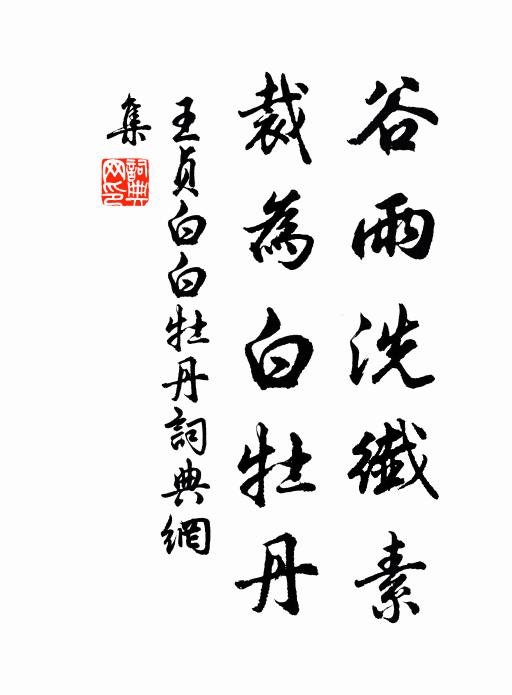 谷雨洗纖素
裁為白牡丹
王貞白白牡丹詞典網
集
詞典網印